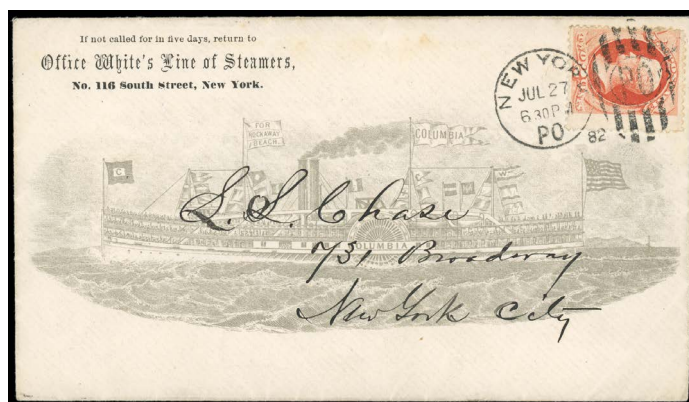 If not called for in five days, return to
Office White's Line of Steamers,
No. 116 South Street, New York.
NEW YORK
JUL 27
6 30 P M
PO
82
FOR
ROCKAWAY
BEACH.
COLUMBIA
C
COLUMBIA
L. L. Chase
731 Broadway
New York City